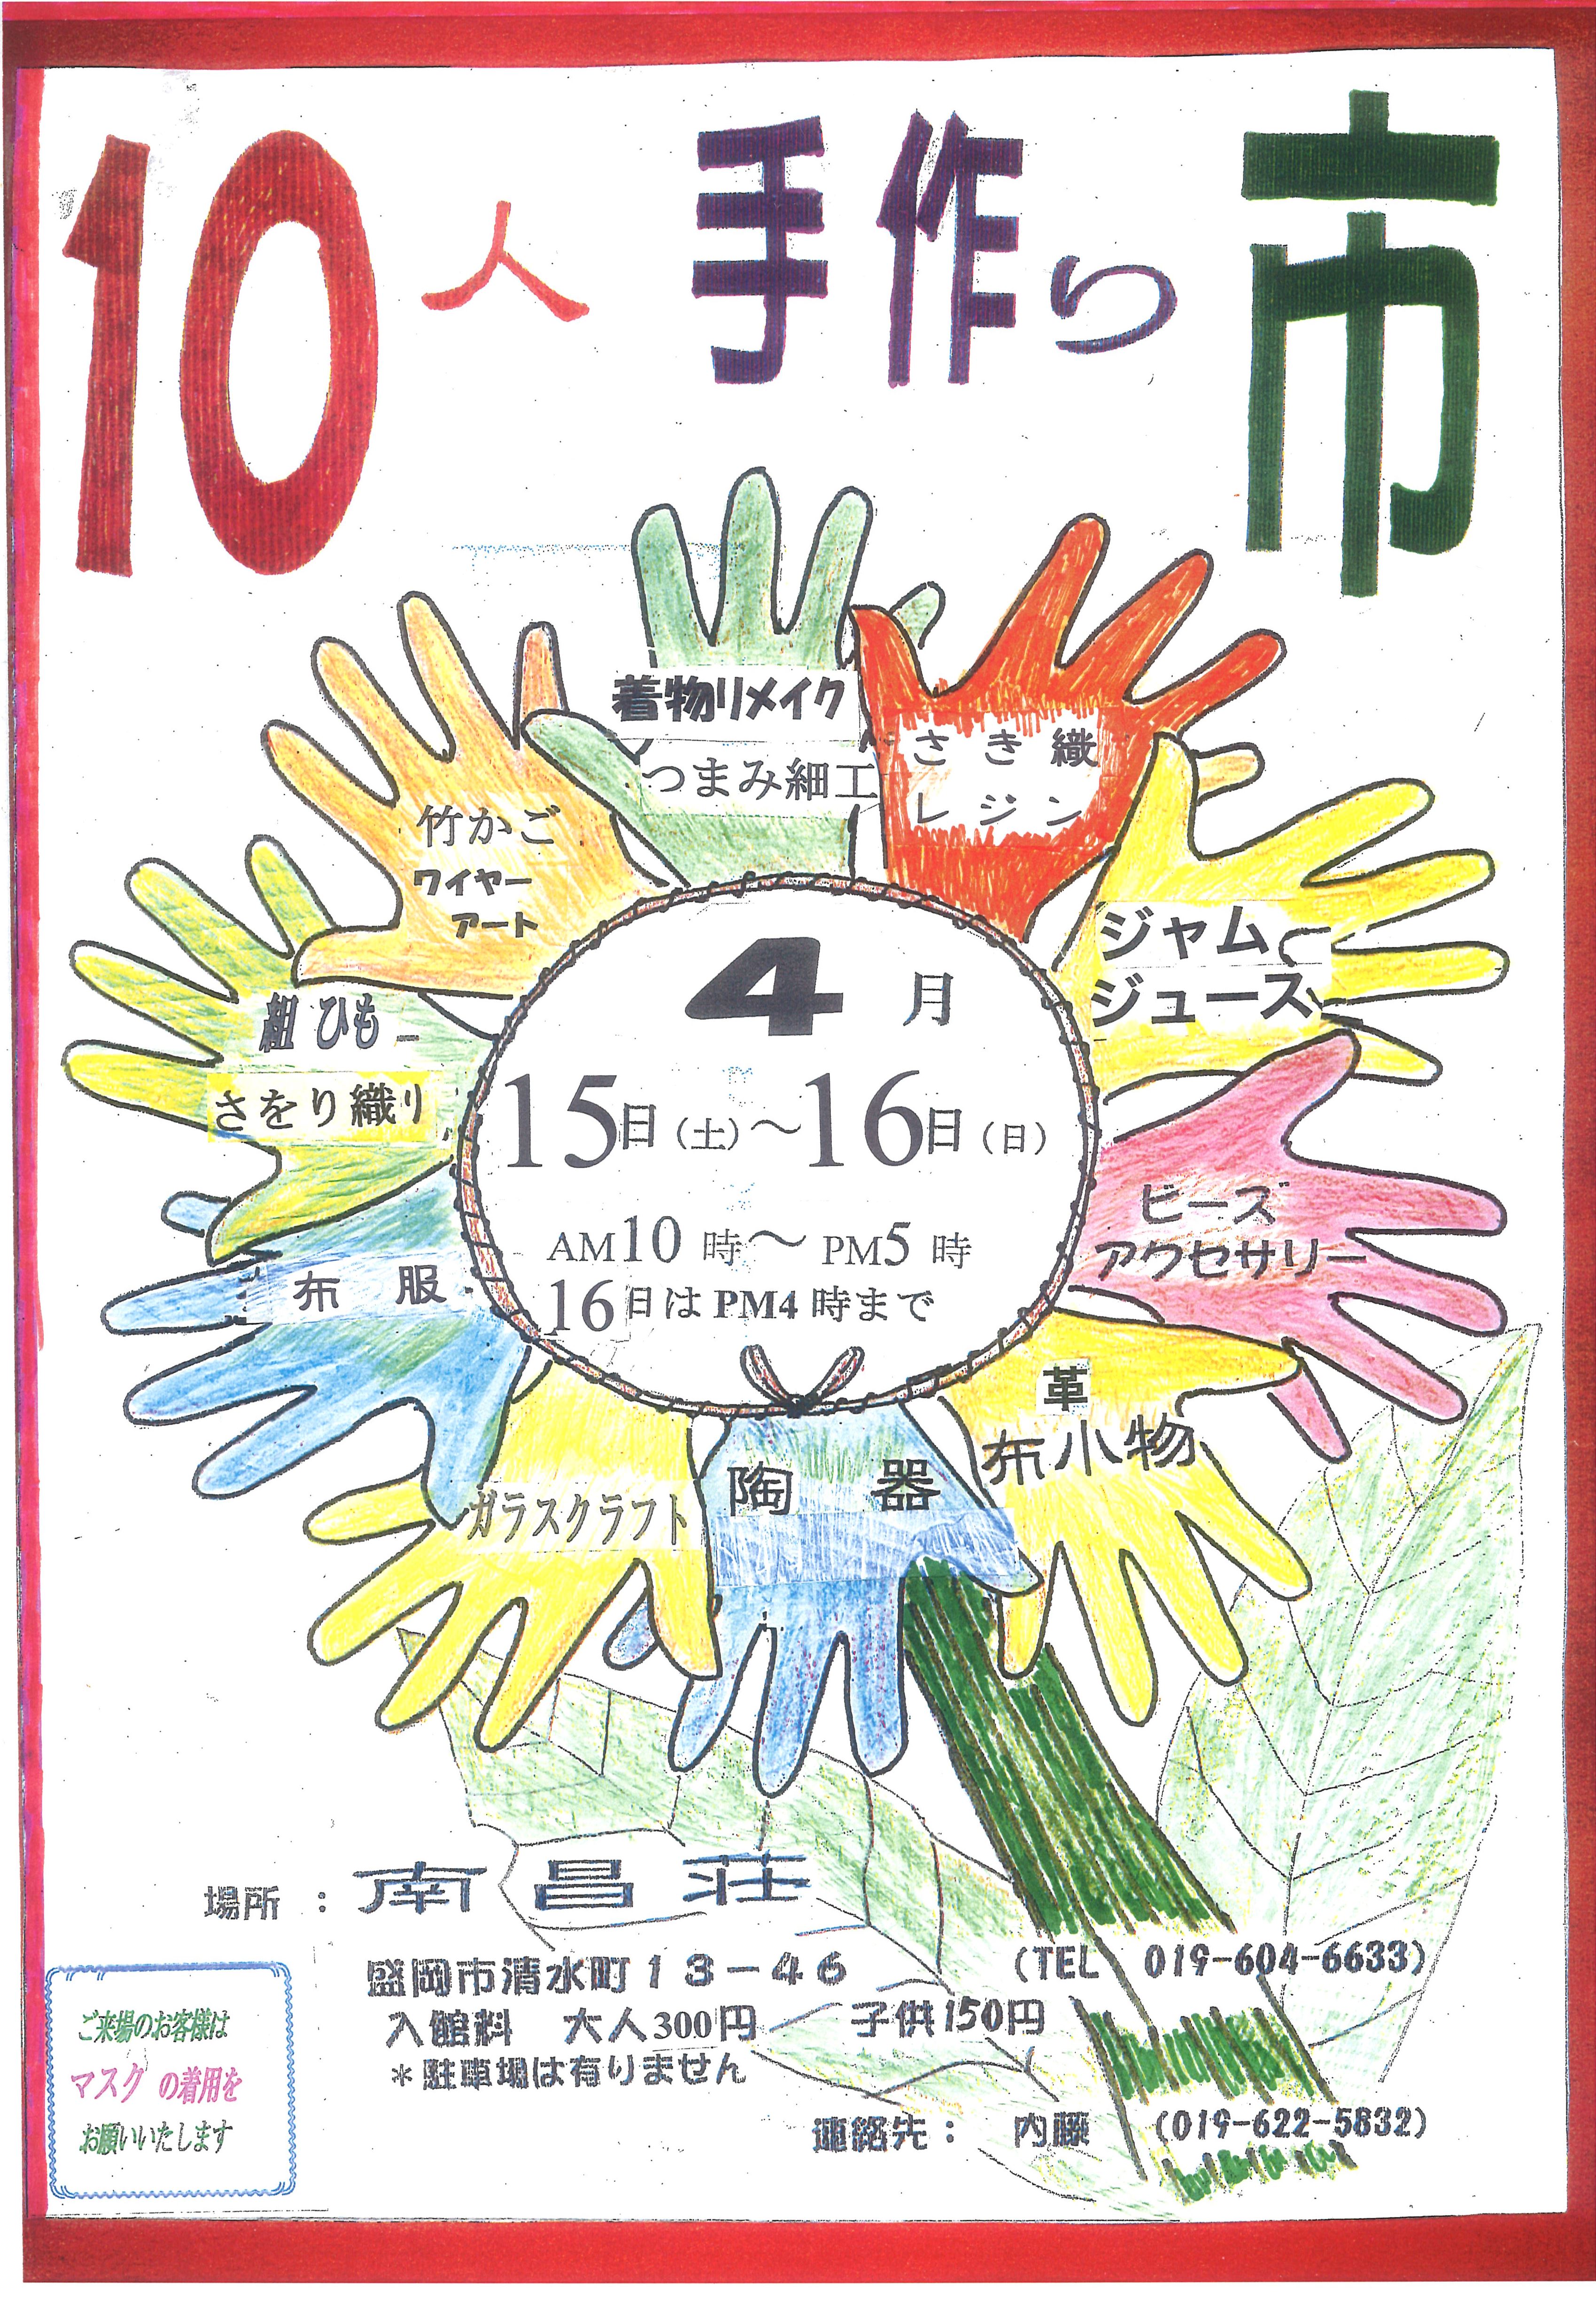 10人 手作り 市
着物リメイク
つまみ細工
さき織
レジン
竹かご
ワイヤー
アート
ジャム
ジュース
組ひも
さをり織り
ビーズ
アクセサリー
布 服
革
布小物
ガラスクラフト
陶 器
4 月
15日(土)~16日(日)
AM10 時~ PM5 時
16日は PM4 時まで
場所 : 南昌荘
盛岡市清水町13-46 (TEL 019-604-6633)
入館料 大人300円 子供150円
*駐車場は有りません
連絡先: 内藤 (019-622-5832)
ご来場のお客様は
マスク の着用を
お願いいたします